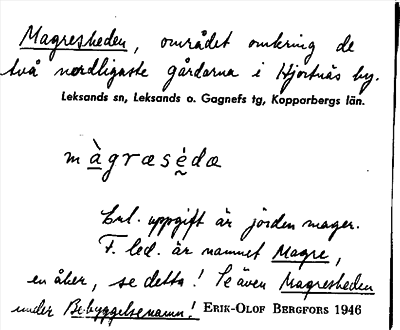 Magresheden, området omkring de
två nordligaste gårdarna i Hjortnäs by.
Leksands sn, Leksands o. Gagnefs tg, Kopparbergs län.
màgræsèdæ
Enl. uppgift är jorden mager.
F. led. är namnet Magre,
en åker, se detta! Se även Magresheden
under Bebyggelsenamn! ERIK-OLOF BERGFORS 1946